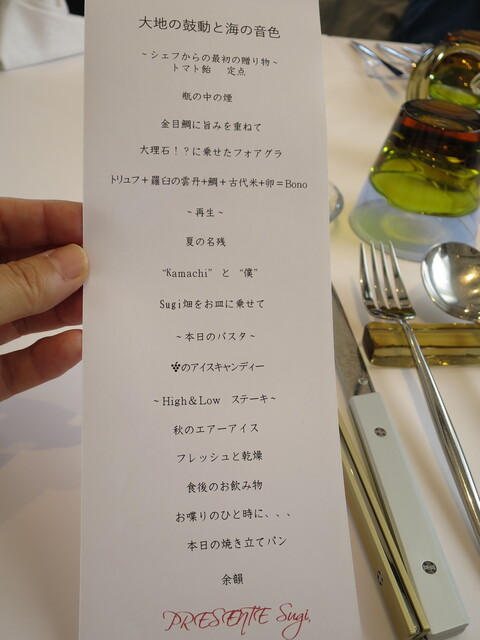 大地の鼓動と海の音色
~シェフからの最初の贈り物~
トマト飴 定点
瓶の中の煙
金目鯛に旨みを重ねて
大理石！？に乗せたフォアグラ
トリュフ＋羅臼の雲丹+鯛＋古代米+卵＝Bono
~再生~
夏の名残
“Kamachi” と “僕”
Sugi畑をお皿に乗せて
~本日のパスタ~
🍇のアイスキャンディー
~High＆Low ステーキ~
秋のエアーアイス
フレッシュと乾燥
食後のお飲み物
お喋りのひと時に、、、
本日の焼き立てパン
余韻
PRESENTE Sugi.